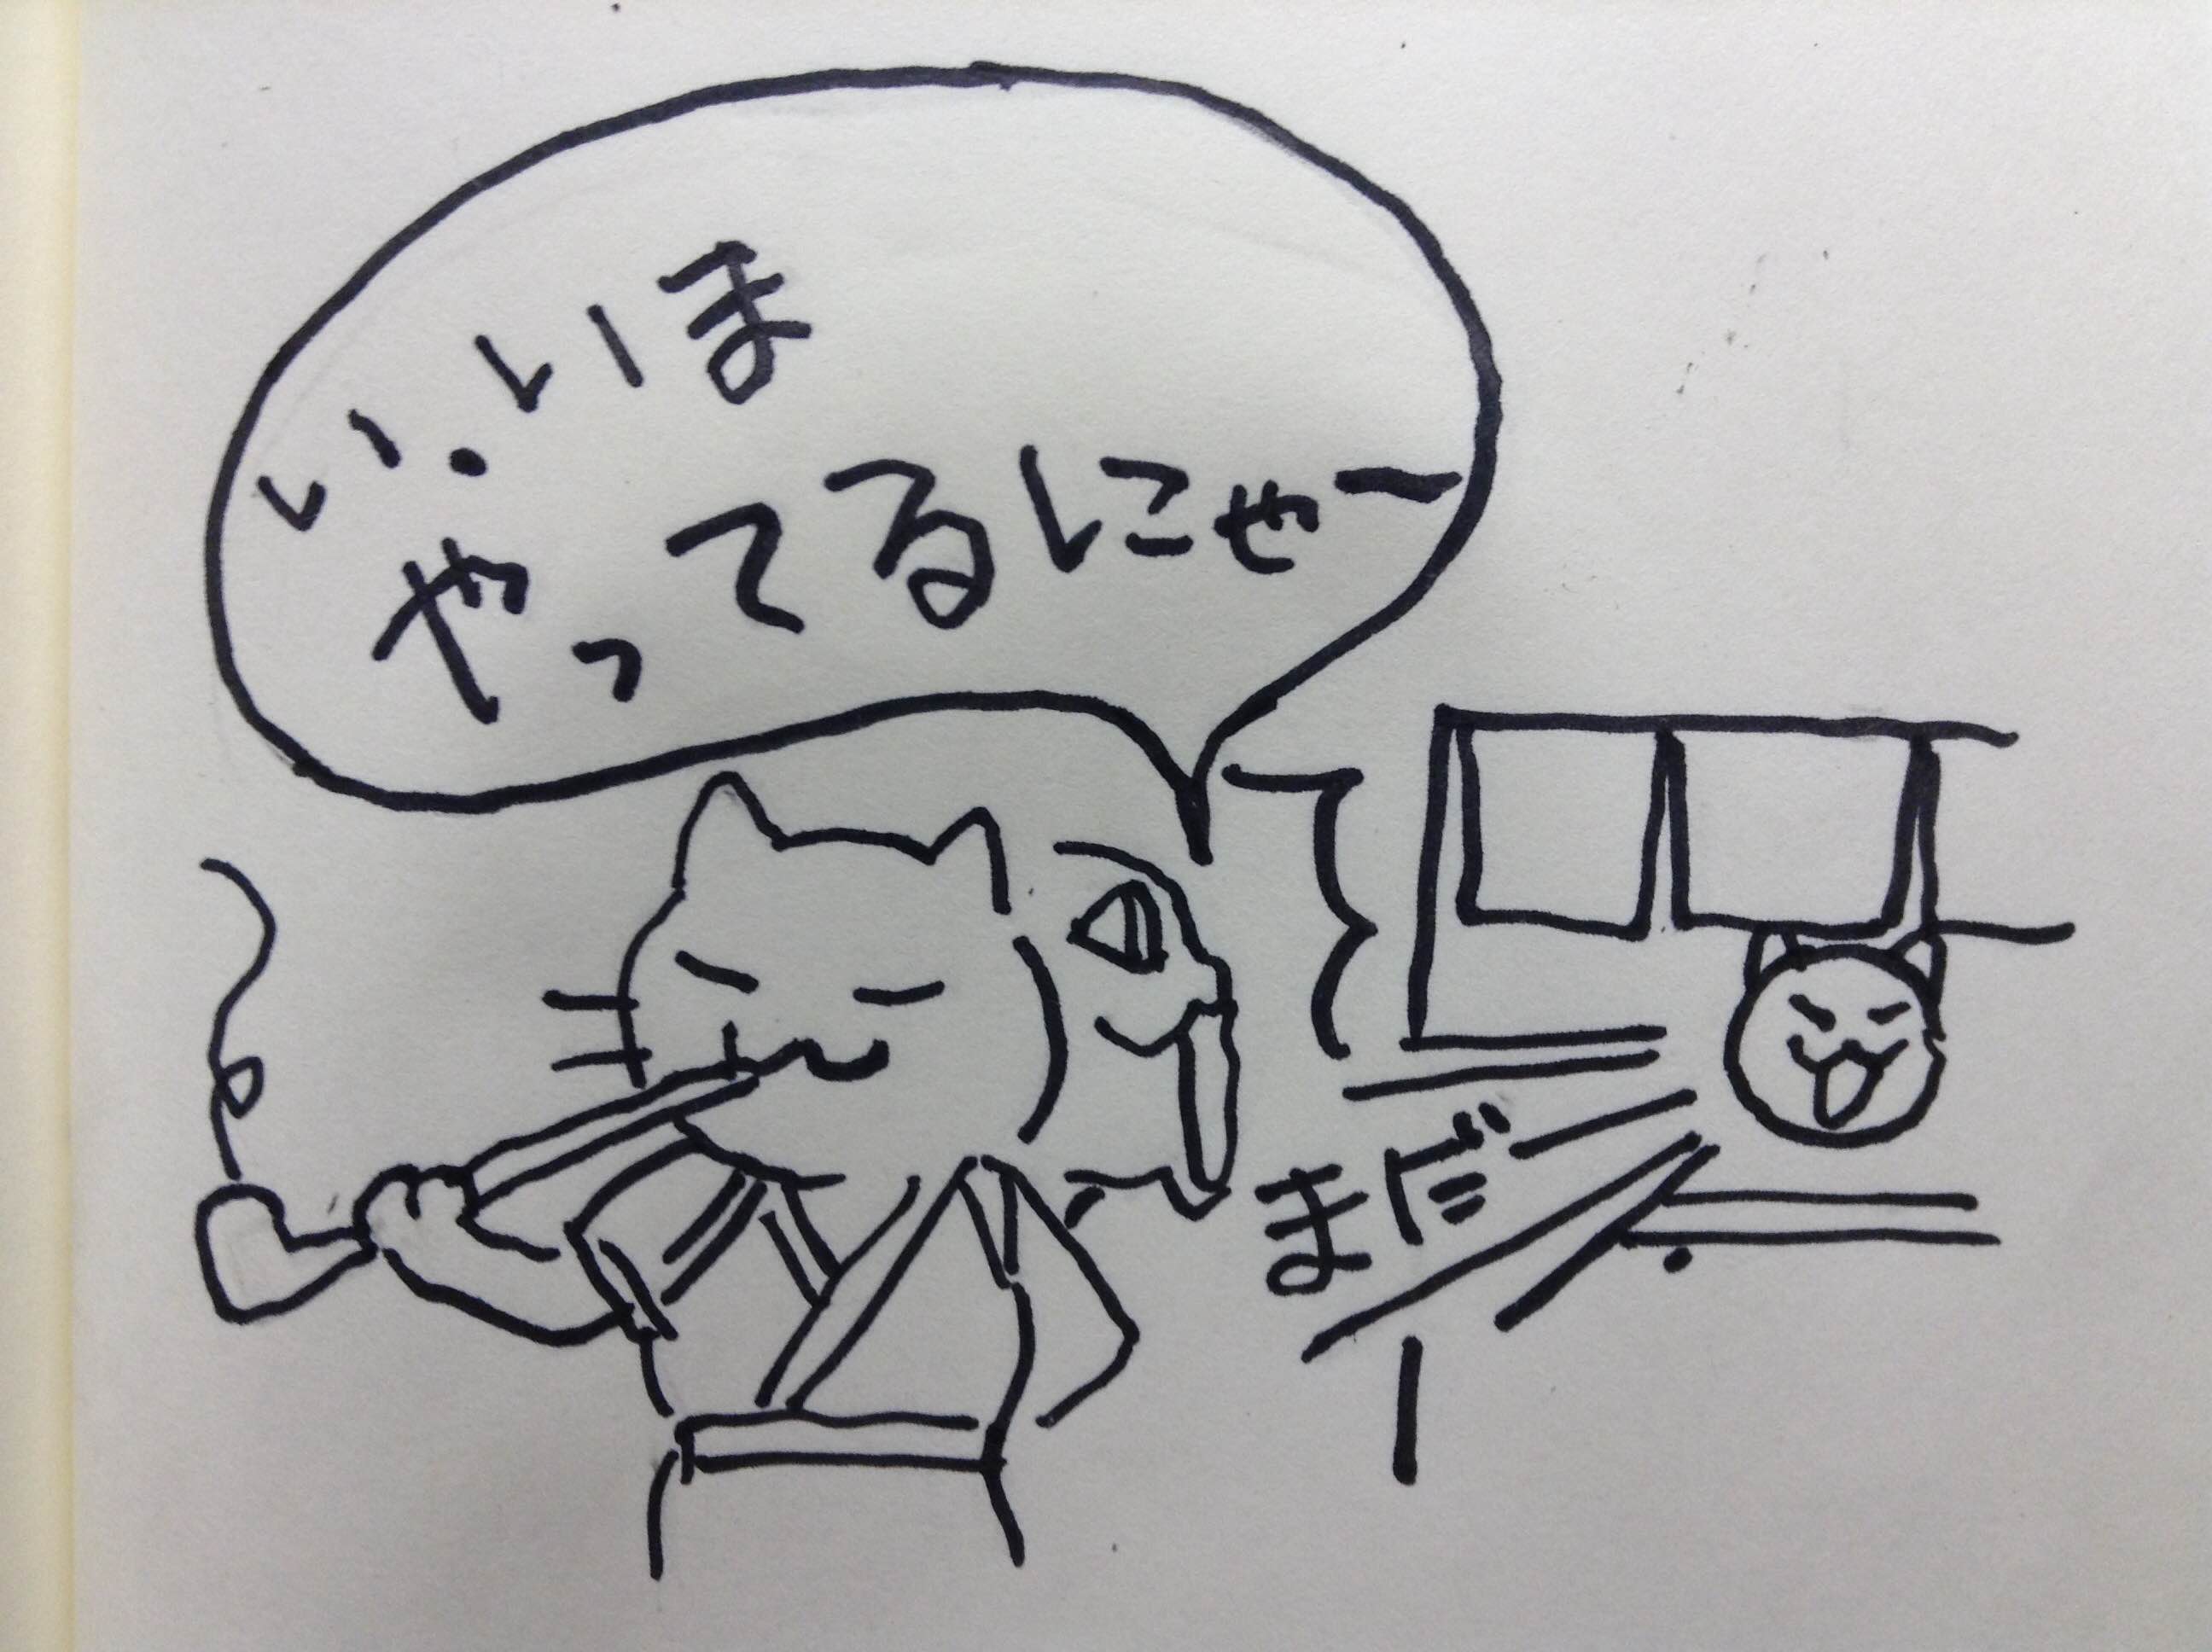 い.いま
やってるにゃー
まだ